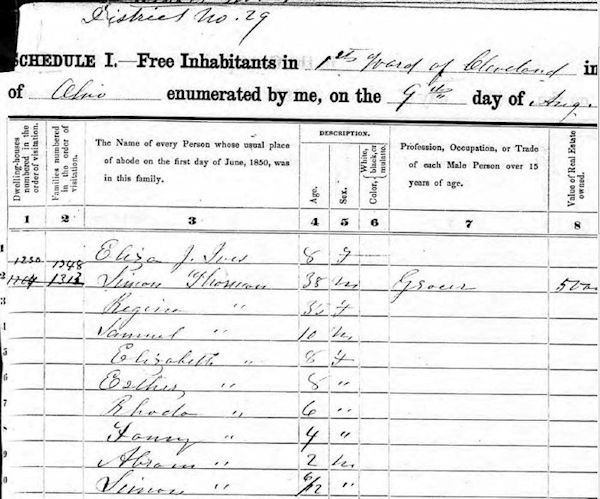 District No. 29
SCHEDULE I.—Free Inhabitants in 1st Ward of Cleveland in
of Ohio enumerated by me, on the 9th day of Aug.
DESCRIPTION.
Dwelling-houses numbered in the order of visitation.
Families numbered in the order of visitation.
The Name of every Person whose usual place of abode on the first day of June, 1850, was in this family.
Age.
Sex.
Color, {White, black, or mulatto.
Profession, Occupation, or Trade of each Male Person over 15 years of age.
Value of Real Estate owned.
1 2 3 4 5 6 7 8
1 1250 1348 Eliza J. Ives 8 F
2 1313 Simon Thoman 38 M Grocer 500
3 Regina " F
4 Samuel " 10 M
5 Elizabeth " 8 F
6 Esther " 8 "
7 Rhoda " 6 "
8 Fanny " 4 "
9 Abram " 2 M
0 Simon " 6/12 "